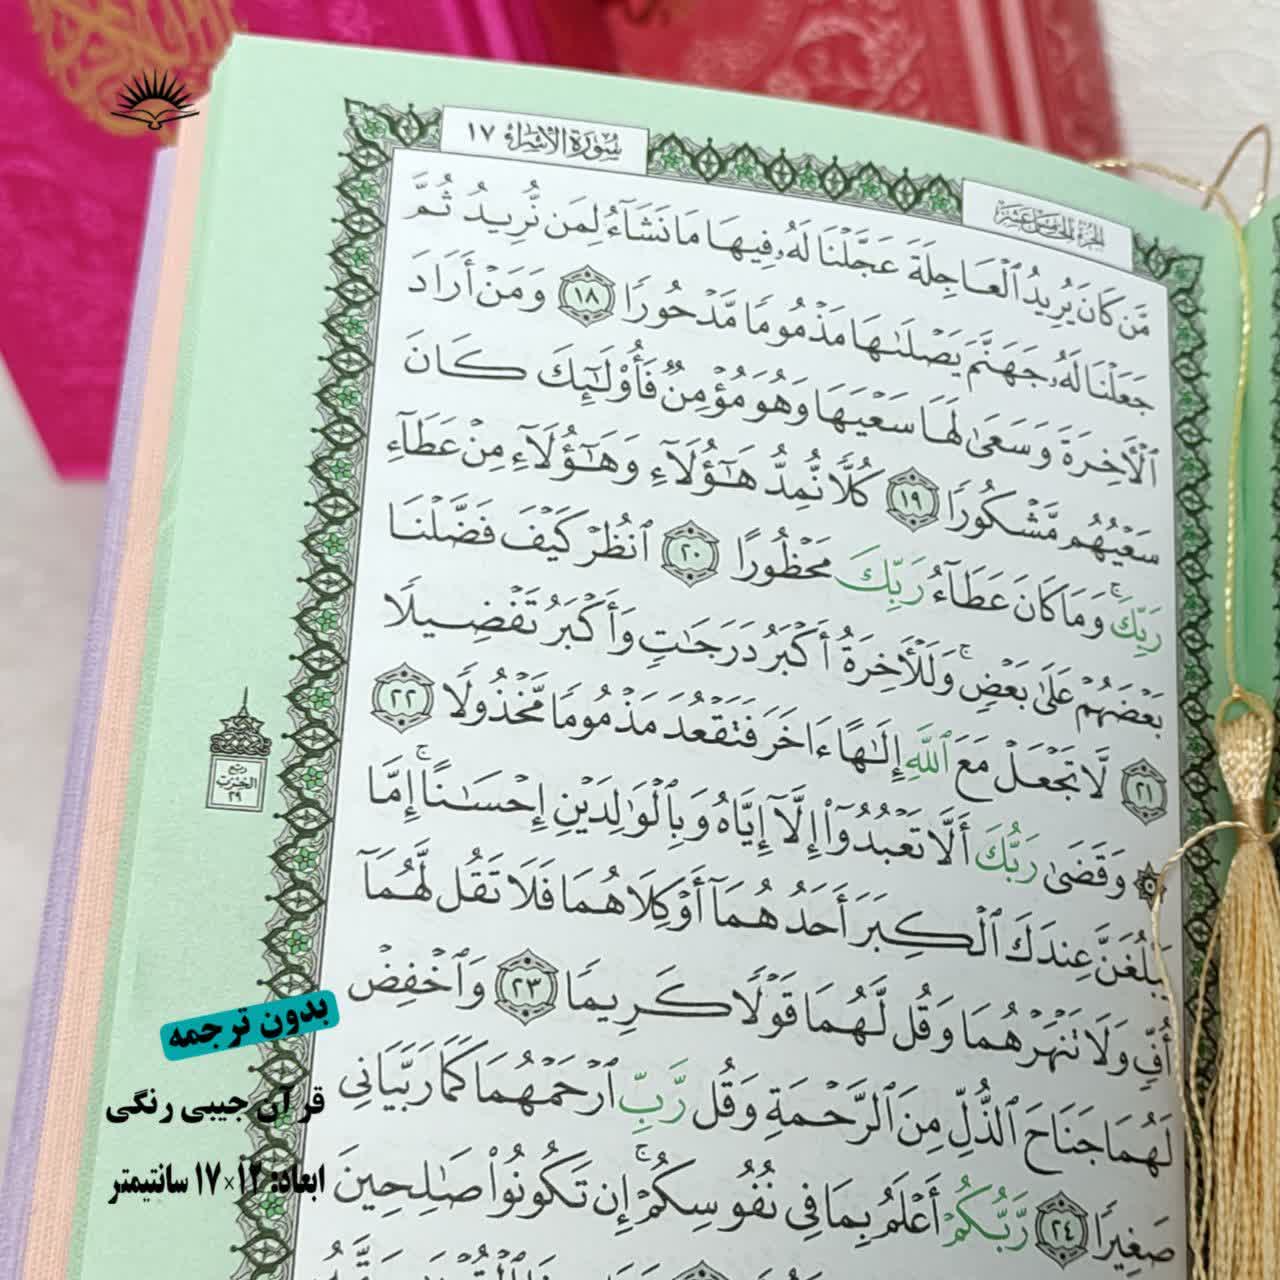 سُورَةُ الْإِسْرَاءِ ١٧
الجُزْءُ الخَامِسَ عَشَرَ
مَّن كَانَ يُرِيدُ ٱلۡعَاجِلَةَ عَجَّلۡنَا لَهُۥ فِيهَا مَا نَشَآءُ لِمَن نُّرِيدُ ثُمَّ
جَعَلۡنَا لَهُۥ جَهَنَّمَ يَصۡلَىٰهَا مَذۡمُومٗا مَّدۡحُورٗا ١٨ وَمَنۡ أَرَادَ
ٱلۡأٓخِرَةَ وَسَعَىٰ لَهَا سَعۡيَهَا وَهُوَ مُؤۡمِنٞ فَأُوْلَـٰٓئِكَ كَانَ
سَعۡيُهُم مَّشۡكُورٗا ١٩ كُلّٗا نُّمِدُّ هَـٰٓؤُلَآءِ وَهَـٰٓؤُلَآءِ مِنۡ عَطَآءِ
رَبِّكَۚ وَمَا كَانَ عَطَآءُ رَبِّكَ مَحۡظُورًا ٢٠ ٱنظُرۡ كَيۡفَ فَضَّلۡنَا
بَعۡضَهُمۡ عَلَىٰ بَعۡضٖۚ وَلَلۡأٓخِرَةُ أَكۡبَرُ دَرَجَٰتٖ وَأَكۡبَرُ تَفۡضِيلٗا
٢١ لَّا تَجۡعَلۡ مَعَ ٱللَّهِ إِلَٰهًا ءَاخَرَ فَتَقۡعُدَ مَذۡمُومٗا مَّخۡذُولٗا ٢٢
وَقَضَىٰ رَبُّكَ أَلَّا تَعۡبُدُوٓاْ إِلَّآ إِيَّاهُ وَبِٱلۡوَٰلِدَيۡنِ إِحۡسَٰنًاۚ إِمَّا
يَبۡلُغَنَّ عِندَكَ ٱلۡكِبَرَ أَحَدُهُمَآ أَوۡ كِلَاهُمَا فَلَا تَقُل لَّهُمَآ
أُفّٖ وَلَا تَنۡهَرۡهُمَا وَقُل لَّهُمَا قَوۡلٗا كَرِيمٗا ٢٣ وَٱخۡفِضۡ
لَهُمَا جَنَاحَ ٱلذُّلِّ مِنَ ٱلرَّحۡمَةِ وَقُل رَّبِّ ٱرۡحَمۡهُمَا كَمَا رَبَّيَانِي
صَغِيرٗا ٢٤ رَّبُّكُمۡ أَعۡلَمُ بِمَا فِي نُفُوسِكُمۡۚ إِن تَكُونُواْ صَٰلِحِينَ
ربع
الحزب
٢٩
بدون ترجمه
قرآن جیبی رنگی
ابعاد: ۱۲×۱۷ سانتیمتر